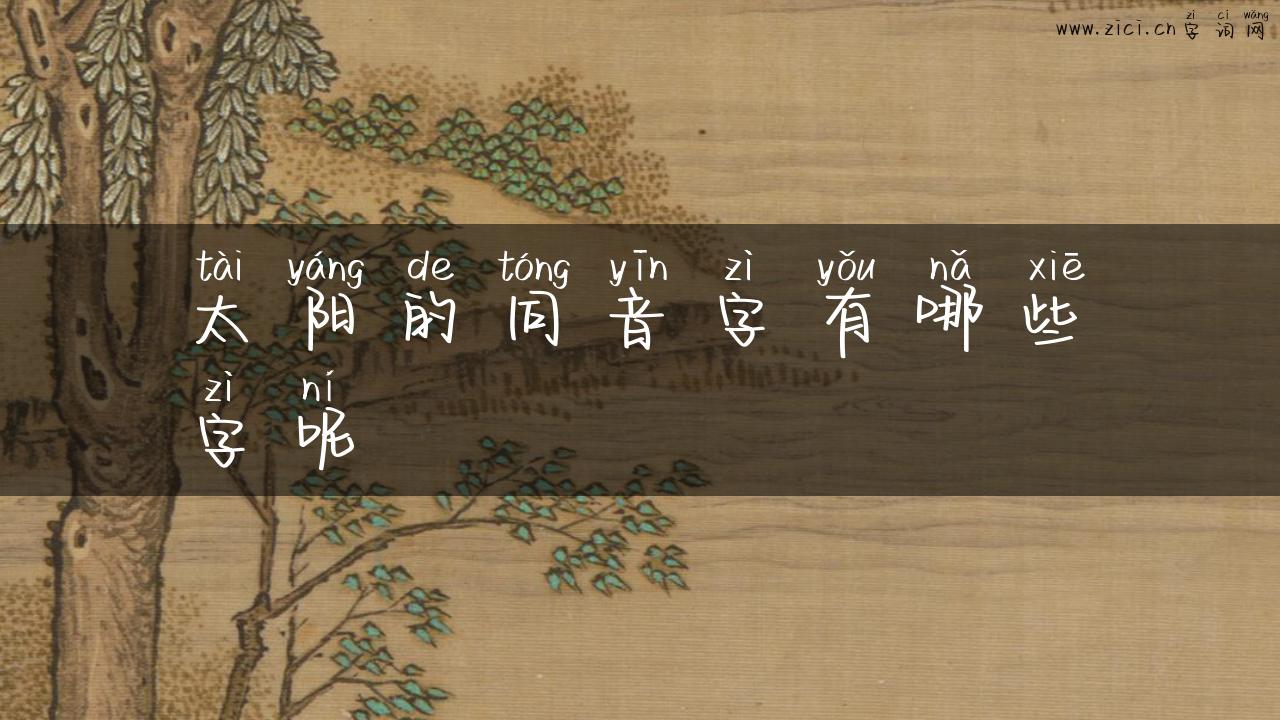 zì cí wǎng
www.zici.cn 字词网
tài yáng de tóng yīn zì yǒu nǎ xiē
太阳的同音字有哪些
zì ní
字呢